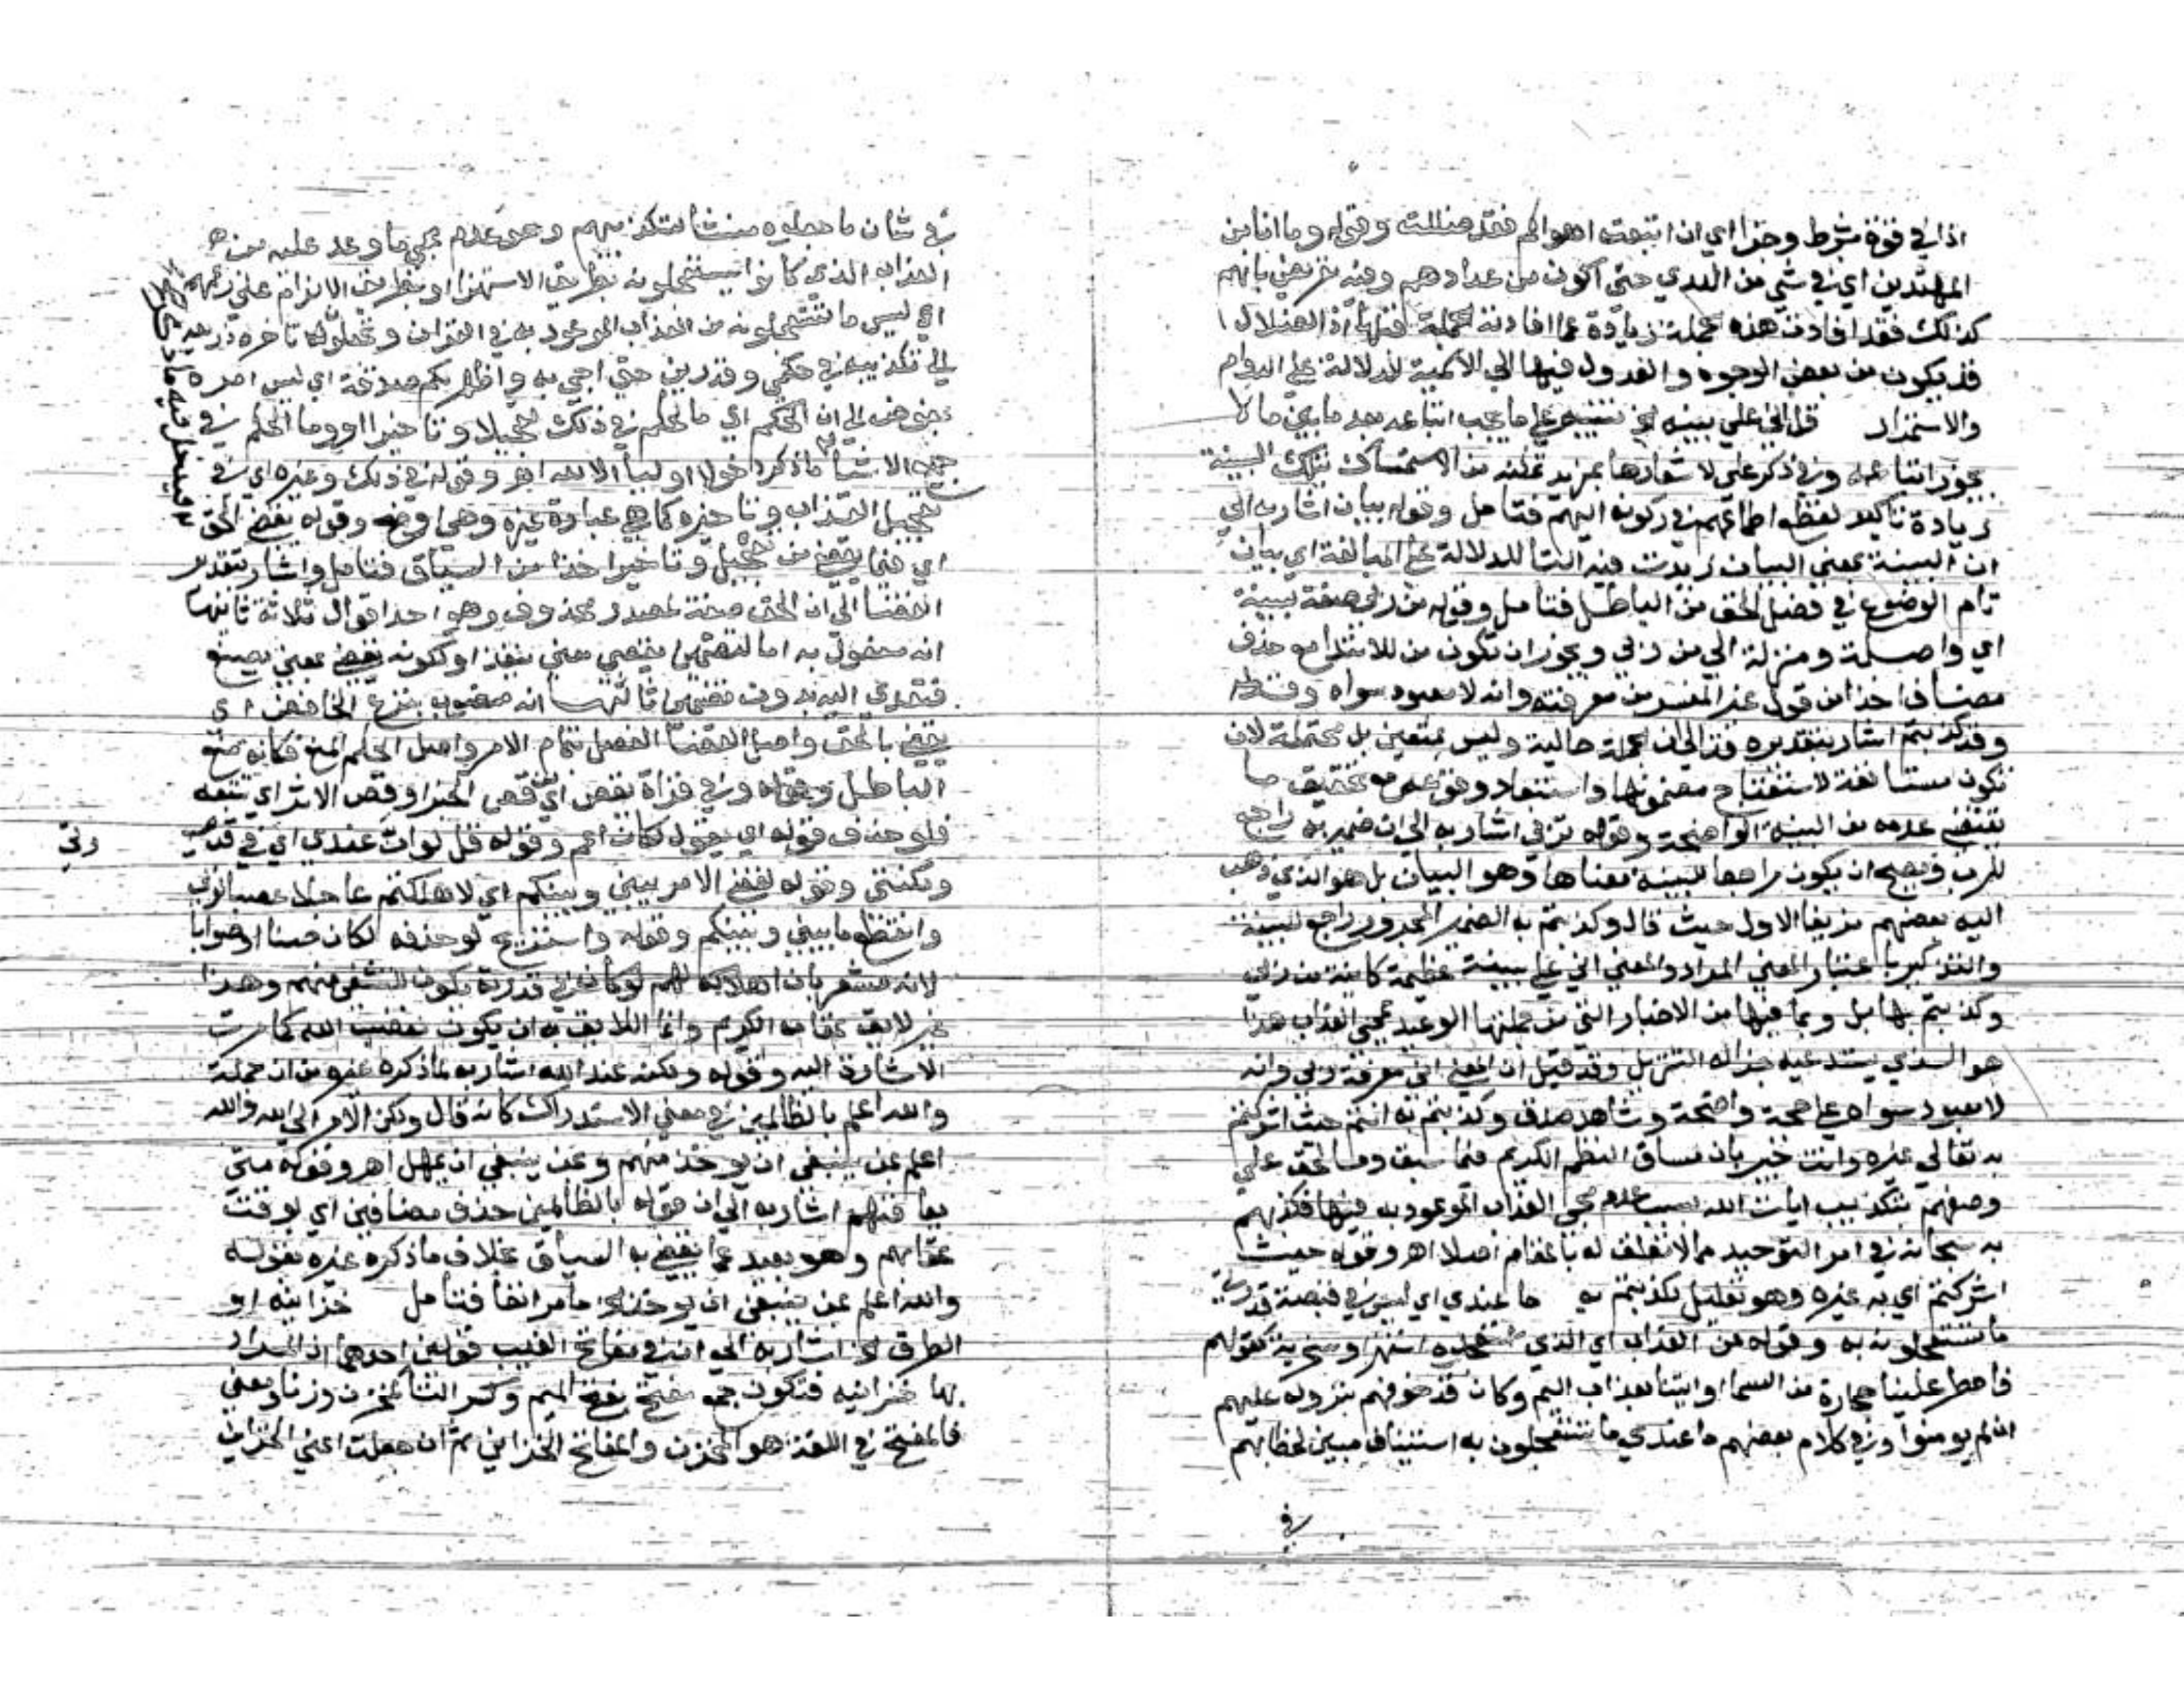 اذا في قوة شرط وجزا اي ان اتبعت اهواكم فقد ضللت وقوله وما انا من
المهتدين اي في شي من الهدي حتى اكون من عدادهم وفيه تعريض بانهم
كذلك فقد افادت هذه الجملة زيادة عما افادته الجملة قبلها اذ الضلال
قد يكون من بعض الوجوه والعدول فيها الى الاسمية للدلالة على الدوام
والاستمرار قل اني على بينة الخ تنبيه على ما يجب اتباعه بعد ما بين ما لا
يجوز اتباعه وفي ذكر على لاشعارها بمزيد تمكنه من الاستمساك بتلك البينة
زيادة تاكيد لقطع اطماعهم في ركونه اليهم فتامل وقوله بيان اشار به الي
ان البينة بمعني البيان زيدت فيه التا للدلالة على المبالغة اي بيان
تام الوضوح في فصل الحق من الباطل فتامل وقوله من ربي صفة لبينة
اي واصلة ومنزلة الي من ربي ويجوز ان تكون من للابتدا مع حذف
مضاف اخذا من قول غير المفسر من معرفته وانه لا معبود سواه
وقد كذبتم اشار بتقديره قد الى ان الجملة حالية وليس بمتعين بل محتملة لان
تكون مستانفة لاستفتاح مضمونها واستبعاد وقوعه مع تحقيق ما
يقتضي عدمه من البينة الواضحة وقوله بربي اشار به الى ان ضمير به راجع
للرب ويصح ان يكون راجعا للبينة بمعناها وهو البيان بل هو الذي ذهب
اليه بعضهم مزيفا الاول حيث قال وكذبتم به الضمير المجرور راجع للبينة
والتذكير باعتبار المعني المراد والمعني اني على بينة عظيمة كاينة من ربي
وكذبتم بها بل وبما فيها من الاخبار التي من جملتها الوعيد بمجي العذاب هذا
هو الذي يستدعيه جزالة التنزيل وقد قيل ان المعني اني معرفة ربي وانه
لا معبود سواه على حجة واضحة وشاهد صدق وكذبتم به انتم حيث اشركتم
به تعالى غيره وانت خبير بان مساق النظم الكريم فيما سبق وما لحق على
وصفهم بتكذيب ايات الله بسبب عدم مجي العذاب الموعود به فيها فتكذيبهم
به سبحانه في امر التوحيد مما لا تعلق له بالمقام اصلا اهـ وقوله حيث
اشركتم اي به غيره وهو تعليل لكذبتم به ما عندي اي ليس في قبضة قدرتي
ما تستعجلون به وقوله من العذاب اي الذي استهزا وسخرية بقولهم
فامطر علينا حجارة من السما او ايتنا بعذاب اليم وكان قد خوفهم بنزوله عليهم
ان لم يومنوا وفي كلام بعضهم ما عندي ما تستعجلون به استيناف مبين لخطايهم
في
في شان ما جعلوه منشا لتكذيبهم وهو عدم مجي ما وعد عليه من
العذاب الذي كانوا يستعجلونه بطريق الاستهزا او بطريق الالزام على زعمهم
اي ليس ما تستعجلونه من العذاب الموعود به في القران وتجعلون تاخره ذريعة
الي تكذيبه في حكمي وقدرتي حتى اجي به واظهر لكم صدقه اي ليس امره
بمفوض الي ان الحكم اي ما الحكم في ذلك تعجيلا وتاخيرا او وما الحكم في
جميع الاشيا ما ذكر دخولا اوليا الا لله اهـ وقوله في ذلك وغيره اي في
تعجيل العذاب وتاخيره كما هي عبارة غيره وهي اوضح وقوله يقضي الحق
اي فيما يقضي من تعجيل وتاخير اخذا من السياق فتامل واشار بتقدير
القضا الى ان الحق صفة لمصدر محذوف وهو احد اقوال ثلاثة ثانيها
انه مفعول به اما لتضمين يقضي معني ينفذ او لكونه يقضي بمعني يصنع
فتعدي اليه بدون تضمين ثالثها انه منصوب بنزع الخافض اي
يقضي بالحق واصل القضا الفصل بتمام الامر واصل الحكم المنع فكانه منع
الباطل وقوله وفي قراة يقص اي من قص الخبر او قص الاثر اي تتبعه
فلو حذف قوله اي يقول لكان اعم وقوله قل لو ان عندي اي في قدرتي
ومكنتي وقوله لقضي الامر بيني وبينكم اي لاهلكتكم عاجلا غضبا لربي
وانقطع ما بيني وبينكم وقوله واستريح لو حذفه لكان حسنا او صوابا
لانه مشعر بان اهلاكه لهم لو كان في قدرته يكون للتشفي منهم وهذا
غير لايق بمقامه الكريم وانما اللايق به ان يكون لغضب الله كما مرت
الاشارة اليه وقوله ولكنه عند الله اشار به لما ذكره غيره من ان جملة
والله اعلم بالظالمين في معني الاستدراك كانه قال ولكن الامر الى الله والله
اعلم بمن ينبغي ان يوخذ منهم وبمن ينبغي ان يمهل اهـ وقوله متى
يعاقبهم اشار به الى ان قوله بالظالمين حذف مضافين اي بوقت
عقابهم وهو بعيد عما يقضي به السياق بخلاف ما ذكره غيره بقوله
والله اعلم بمن ينبغي ان يوخذ الخ ما مر انفا فتامل خزاينه او
الطرق الخ اشار به الى ان في مفاتح الغيب قولين احدهما ان المراد
بها خزاينه فتكون جمع مفتح بفتح الميم وكسر التا كمخزن وزنا ومعني
فالمفتح في اللغة هو المخزن والمفاتح الخزاين ثم ان جعلت اعني الخزاين